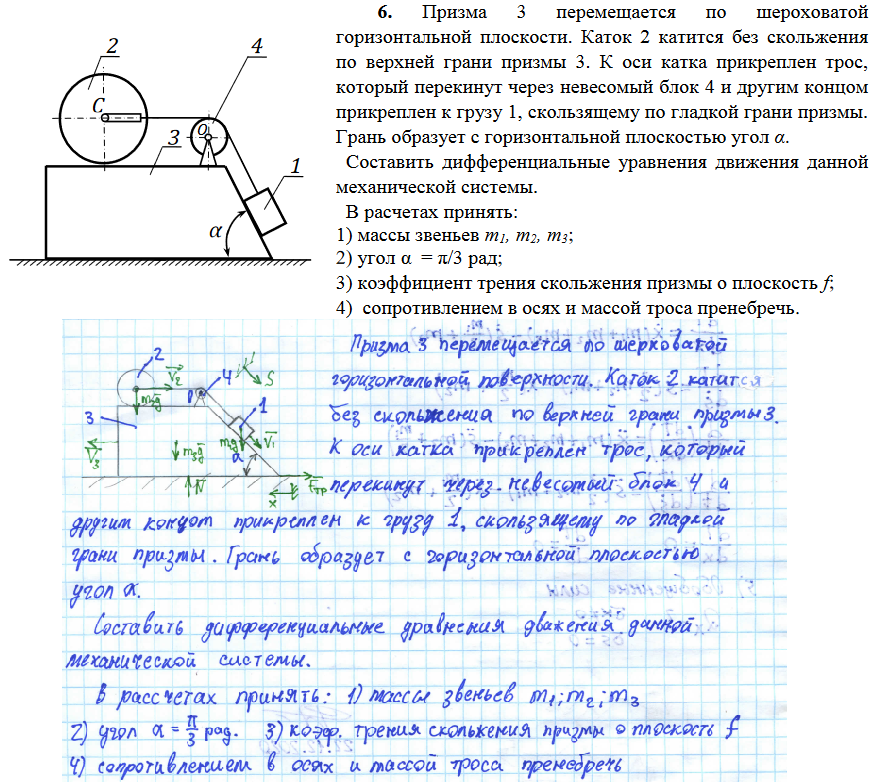 6. Призма 3 перемещается по шероховатой
горизонтальной плоскости. Каток 2 катится без скольжения
по верхней грани призмы 3. К оси катка прикреплен трос,
который перекинут через невесомый блок 4 и другим концом
прикреплен к грузу 1, скользящему по гладкой грани призмы.
Грань образует с горизонтальной плоскостью угол α.
Составить дифференциальные уравнения движения данной
механической системы.
В расчетах принять:
1) массы звеньев m1, m2, m3;
2) угол α = π/3 рад;
3) коэффициент трения скольжения призмы о плоскость f;
4) сопротивлением в осях и массой троса пренебречь.
2
4
C
O
3
1
α
Призма 3 перемещается по шерховатой
горизонтальной поверхности. Каток 2 катится
без скольжения по верхней грани призмы 3.
К оси катка прикреплен трос, который
перекинут через невесомый блок 4 и
другим концом прикреплен к грузу 1, скользящему по гладкой
грани призмы. Грань образует с горизонтальной плоскостью
угол α.
Составить дифференциальные уравнения движения данной
механической системы.
В рассчетах принять: 1) массы звеньев m1; m2; m3
2) угол α = π/3 рад. 3) коэф. трения скольжения призмы о плоскость f
4) сопротивлением в осях и массой троса пренебречь
2
V2
4
S
m2g
1
3
m1g
V1
V3
m3g
α
N
x
Fтр